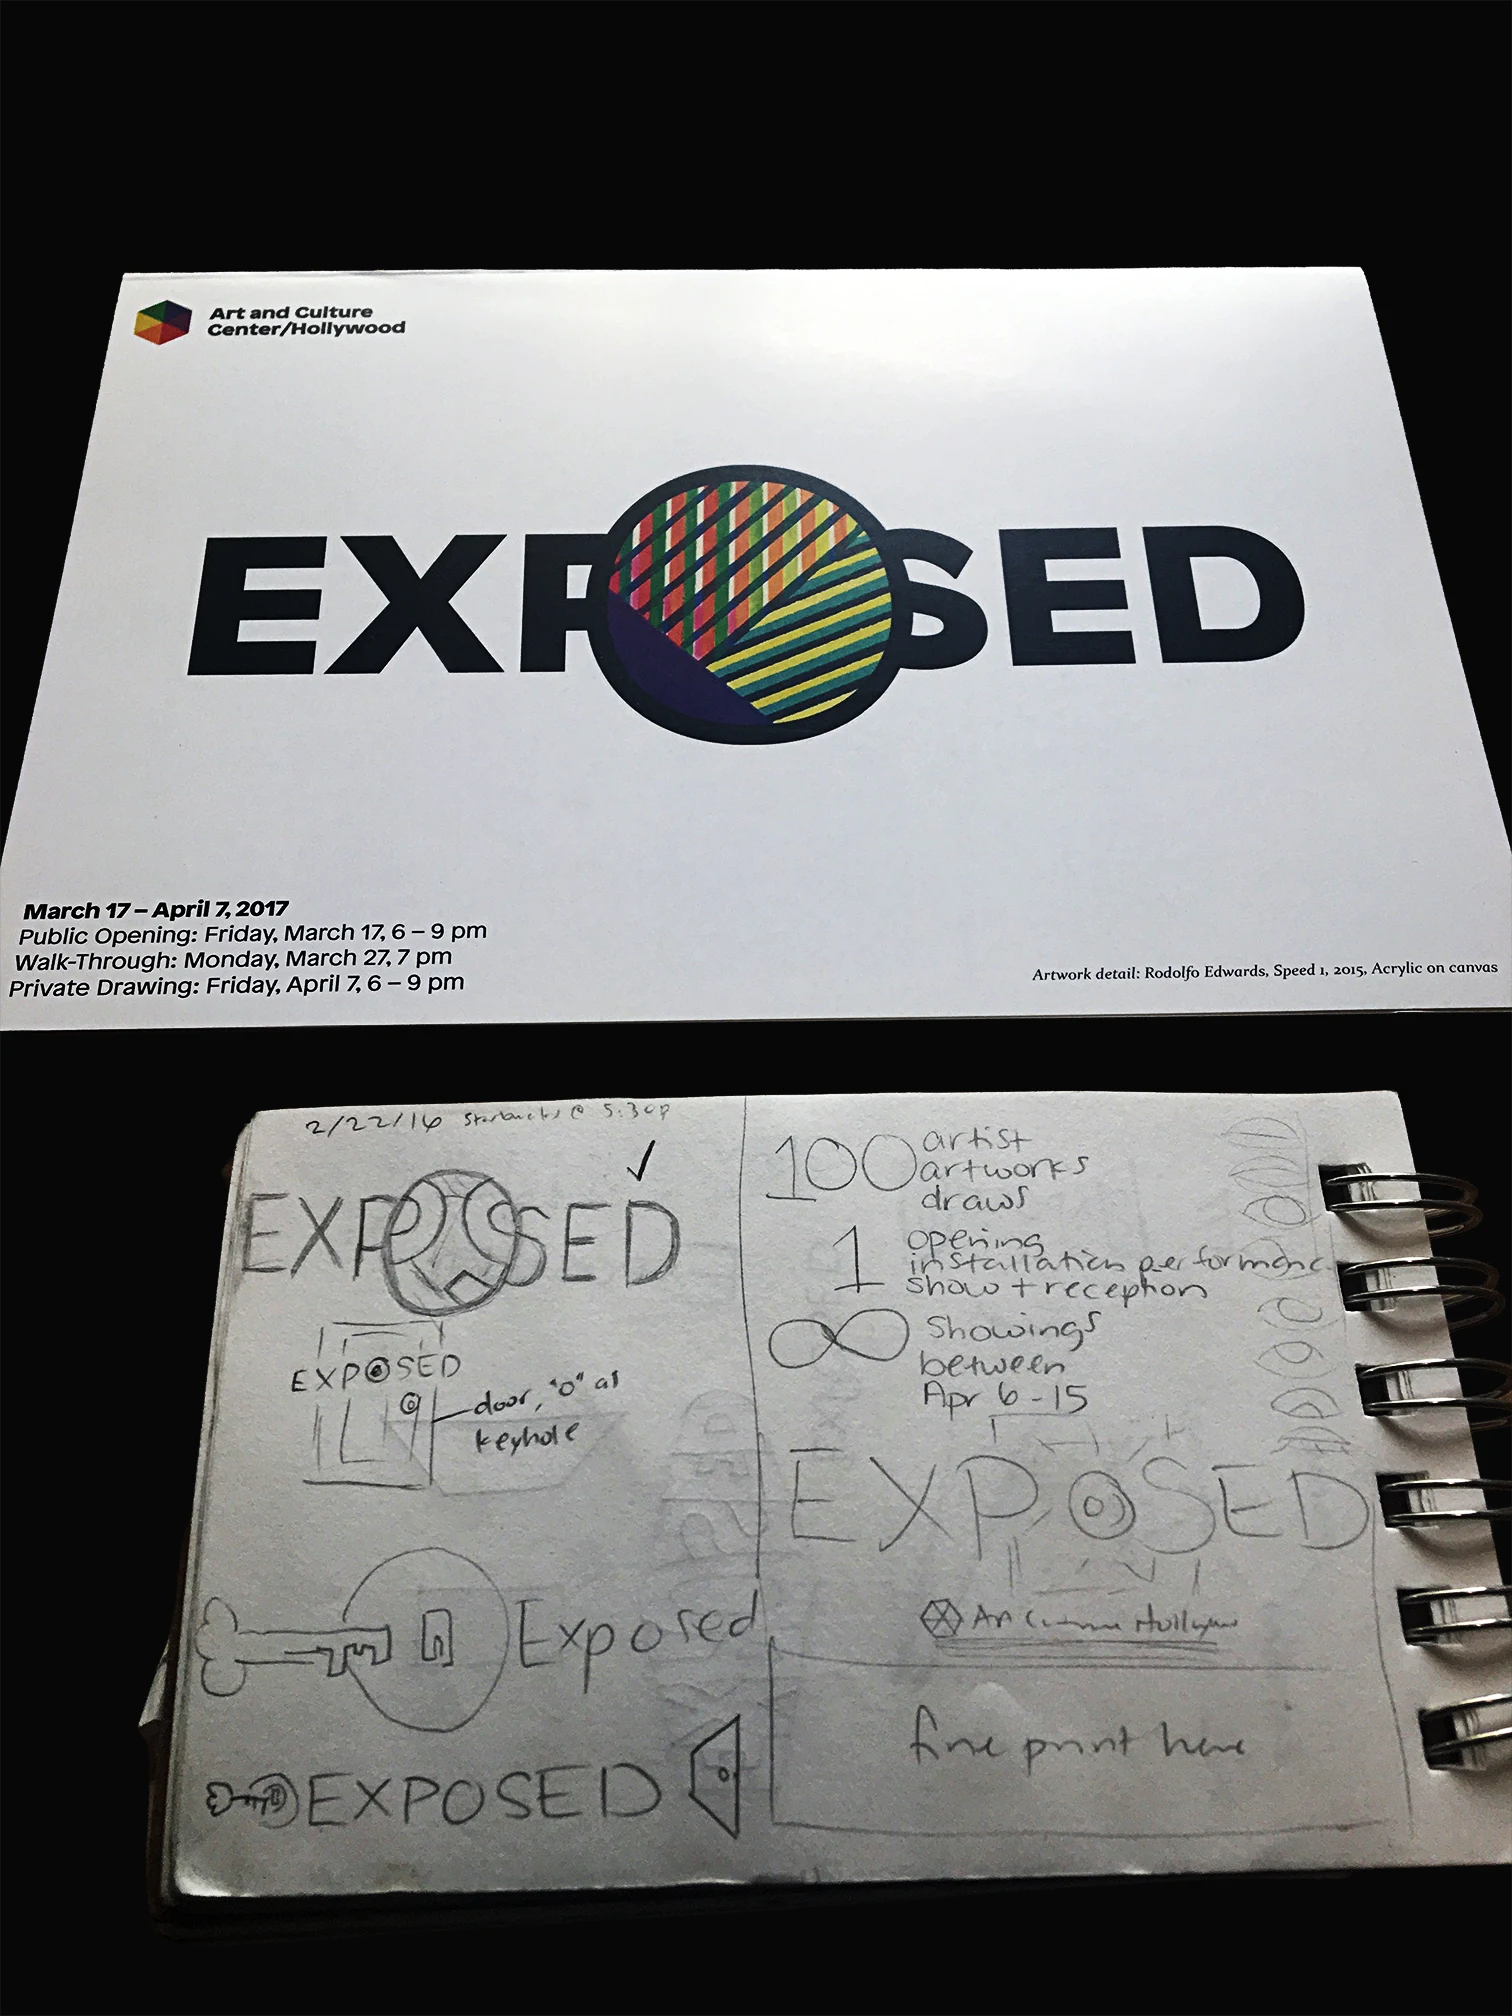 Art and Culture
Center/Hollywood
EXPOSED
March 17 – April 7, 2017
Public Opening: Friday, March 17, 6 – 9 pm
Walk-Through: Monday, March 27, 7 pm
Private Drawing: Friday, April 7, 6 – 9 pm
Artwork detail: Rodolfo Edwards, Speed 1, 2015, Acrylic on canvas
2/22/16 Starbucks @ 5:30p
EXPOSED
EXPOSED
door, "O" as
keyhole
Exposed
EXPOSED
100 artist
artworks
draws
1 opening
installation performanc
show + reception
∞ Showings
between
Apr 6 - 15
EXPOSED
Art Hollywood
fine print here